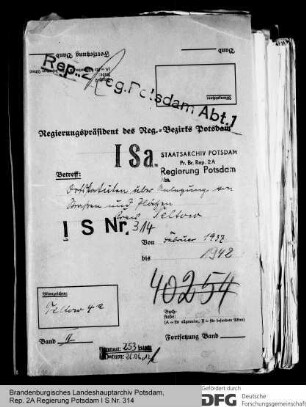 Rep. 2 Reg. Potsdam Abt. 1
Regierungspräsident des Reg.-Bezirks Potsdam
I Sa.
STAATSARCHIV POTSDAM
Pr. Br. Rep. 2A
Regierung Potsdam
Betreff:
Ortsstatuten über Anlegung von
Straßen und Plätzen
Kreis Teltow
I S Nr. 314
Von Februar 1932
bis 1942
40254
Aktenzeichen:
Teltow 4a
Band II
Fortsetzung Band
253
Brandenburgisches Landeshauptarchiv Potsdam,
Rep. 2A Regierung Potsdam I S Nr. 314
Gefördert durch
DFG Deutsche
Forschungsgemeinschaft